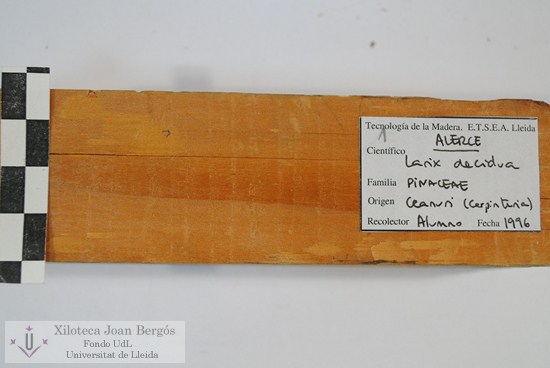 Tecnología de la Madera. E.T.S.E.A. Lleida
1 ALERCE
Científico Larix decidua
Familia PINACEAE
Origen Ceanuri (Carpintería)
Recolector Alumno Fecha 1996
Xiloteca Joan Bergós
Fondo UdL
Universitat de Lleida